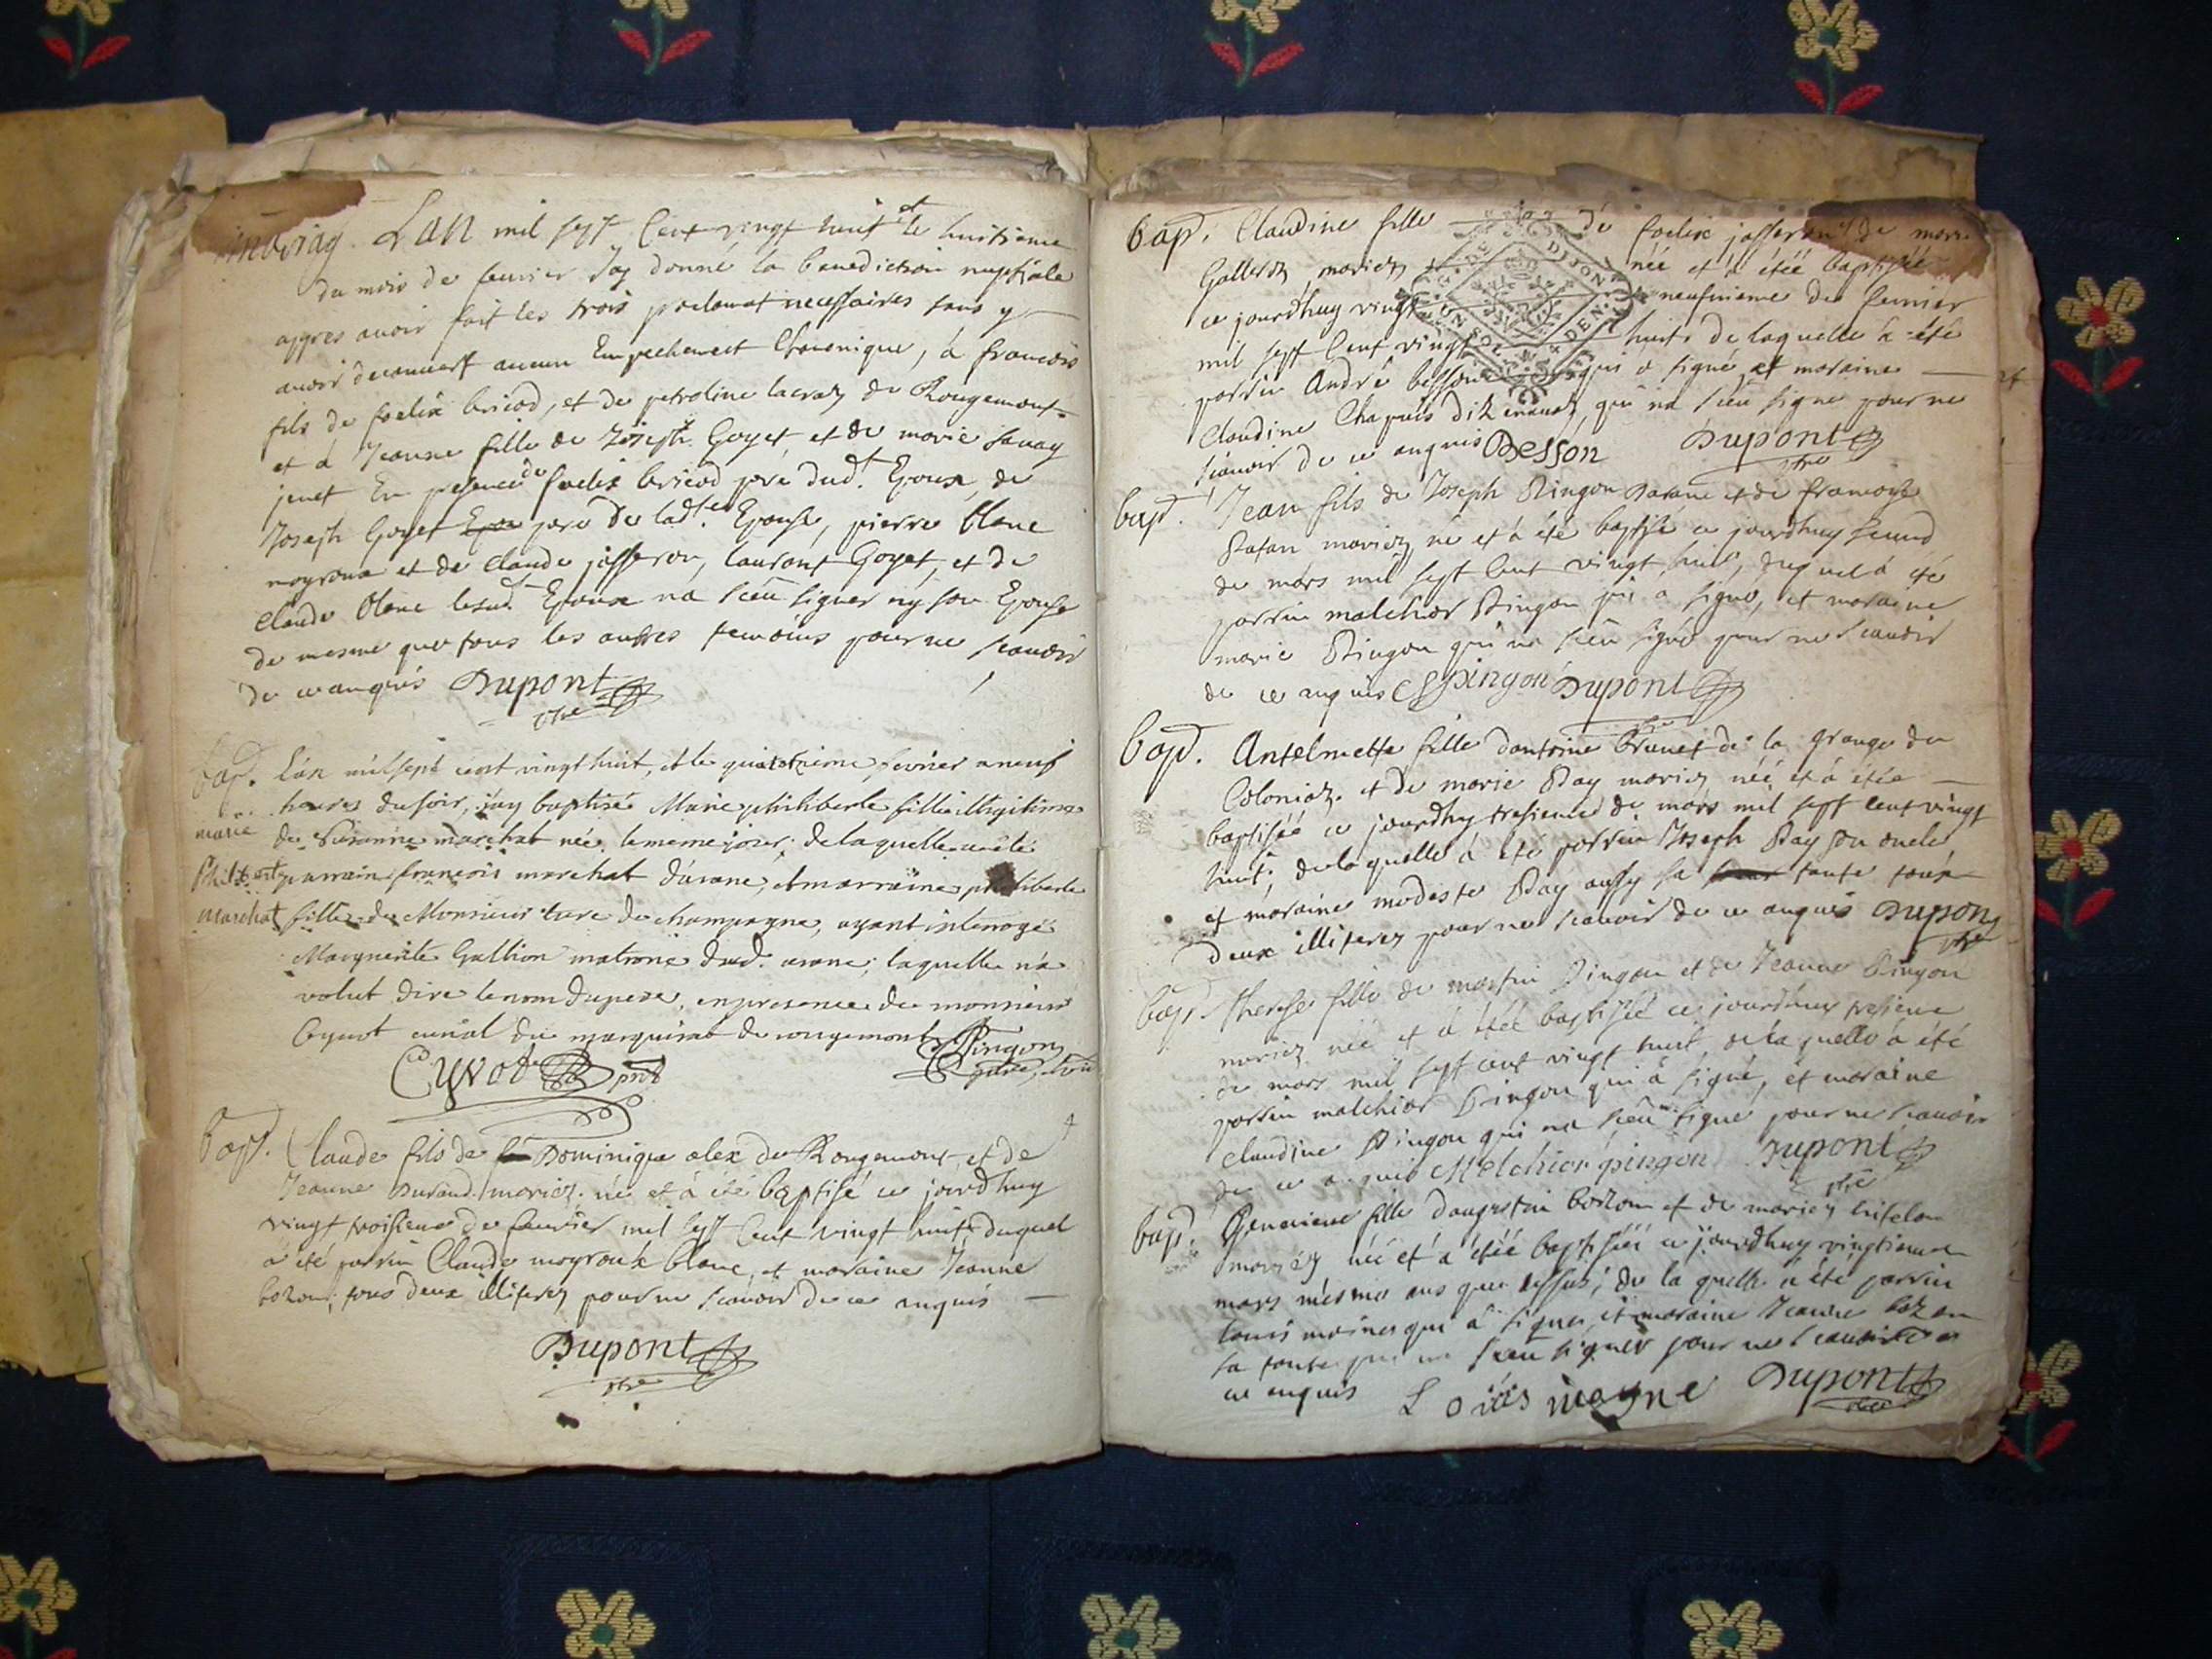 Lan mil sept Cent vingt huit et le huitieme
du mois de feuvrier Jay donné la benediction nuptiale
appres avoir fait les trois proclamat necessaires sans y
avoir decouvert aucun Empechement Chanonique, à francois
fils de foelix bricod, et de petroline lacraz de Rougemont
et à Jeanne fille de Joseph Goyet et de marie savay
jenet En presence de foelix bricod pere dud. Epoux, de
Joseph Goyet pere de ladte. Epouse, pierre blanc
moyroux et de Claude josseron, laurent Goyet, et de
Claude blanc lesud. Epoux na sceu signer ny son Epouse
de mesme que tous les autres temoins pour ne scavoir
de ce anquis Dupont
ptre
bap. L'an mil sept cent vingt huit, et le quatorzieme fevrier a neuf
heures du soir, j'ay baptisé Marie philiberte fille illegitime
marie
de Susanne marchat née le meme jour, de laquelle a été
Philiberte parrain françois marchat d'arane, et marraine philiberte
marchat fille de Monsieur ture de champagne, ayant interrogé
Marguerite Gallion matrone dud. arane, laquelle n'a
volut dire le nom du pere, en presence de monsieur
Cyvot curial du marquisat de rougemont
Cyvot pnt Pingon
bap. Claude fils de Dominique alex de Rougemont, et de
Jeanne Durand mariez né et à été baptisé ce jourdhuy
vingt troisieme de feuvrier mil sept Cent vingt huit, duquel
à été parrin Claude moyroux blanc, et maraine Jeanne
bozon, tous deux illiterez pour ne scavoir de ce anquis
Dupont
ptre
bap. Claudine fille de foelix josserand de marie
Galleron mariez née et à étéé baptiséé
ce jourdhuy vingt neufvieme de feuvrier
mil sept Cent vingt huit, de laquelle à été
parrin André besson qui à signé et maraine
Claudine Chapuis qui na sceu signe pour ne
scavoir de ce anquis Besson Dupont
ptre
bap. Jean fils de Joseph Pingon Darane et de francoise
Rafan mariez né et à été baptisé ce jourdhuy second
de mars mil sept Cent vingt huit, duquel à été
parrin malchior Pingon qui a signé, et maraine
marie Pingon qui na sceu signe pour ne scavoir
de ce anquis pingon Dupont
ptre
bap. Antelmette fille dantoine brunet de la grange du
Coloniaz. et de marie Bay mariez néé et à étéé
baptiséé ce jourdhy tresieme de mars mil sept Cent vingt
huit, de laquelle à été parrin Joseph Bay son oncle
et maraine modeste Bay aussy sa tante tous
deux illiterez pour ne scavoir de ce anquis Dupont
ptre
bap. therese fille de martin Pingon et de Jeanne Pingon
mariez néé et à étéé baptiséé ce jourdhuy tresieme
de mars mil sept cent vingt huit, de laquelle à été
parrin malchior Pingon qui à signé, et maraine
Claudine Pingon qui na sceu signe pour ne scavoir
de ce anquis Melchior pingon Dupont
ptre
bap. Genevieve fille daugustin bozon et de
mariez néé et à étéé baptiséé ce jourdhuy vingtieme
mars mesme ans que dessus, de la quelle à été parrin
louis moine qui à signer, et maraine Jeanne bozon
sa tante qui na sceu signer pour ne scavoir de
ce anquis Loüis moyne Dupont
ptre